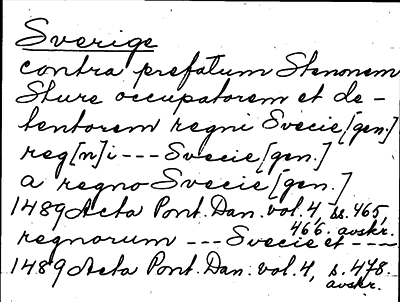 Sverige
contra prefatum Stenonem
Sture occupatorem et de-
tentorem regni Svecie [gen.]
reg[n]i --- Svecie [gen.]
a regno Svecie [gen.]
1489 Acta Pont. Dan. vol. 4, ss. 465,
466. avskr.
regnorum --- Svecie et ----
1489 Acta Pont. Dan. vol. 4, s. 478.
avskr.